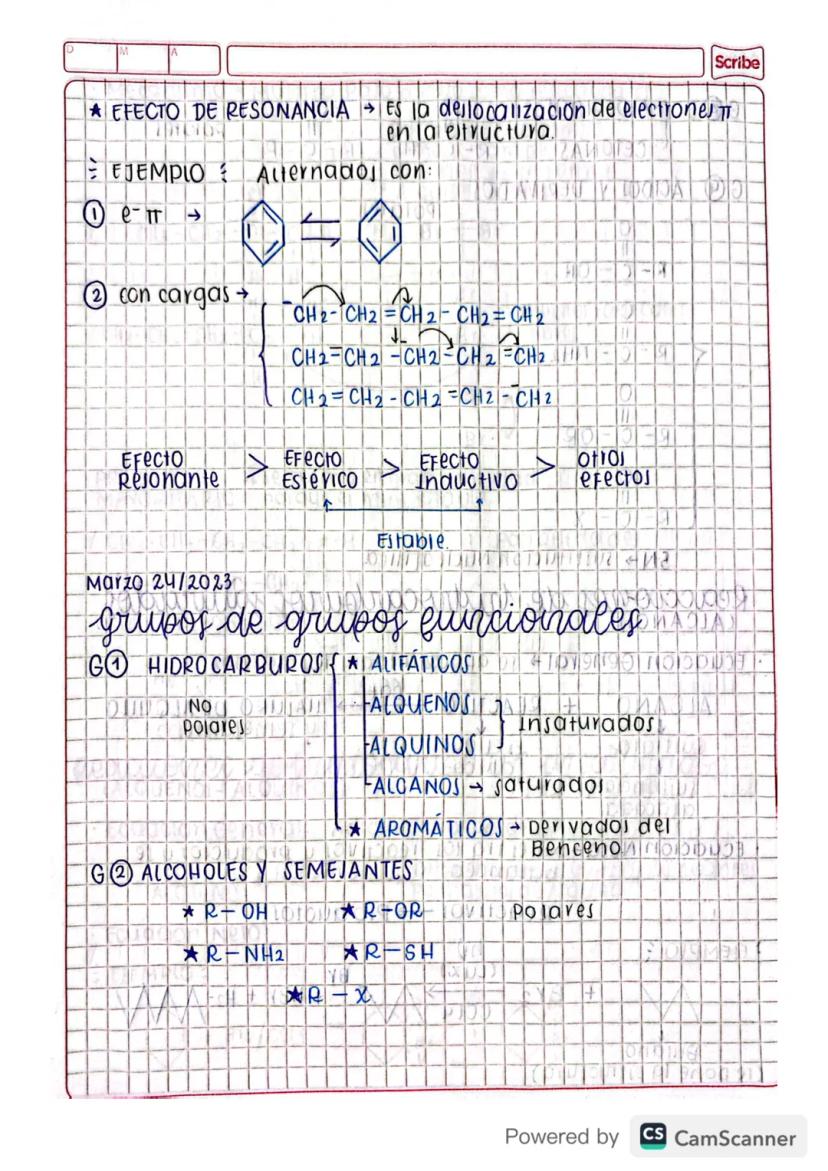 D M A
Scribe
★ EFECTO DE RESONANCIA → Es la deslocalización de electrones π
en la estructura.
EJEMPLO Alternados con:
① e⁻ π →
② con cargas →
⁻CH2 - CH2 = CH2 - CH2 = CH2
CH2 = CH2 - CH2 - CH2 = CH2
CH2 = CH2 - CH2 = CH2 - CH2
Efecto Resonante > Efecto Estérico > Efecto Inductivo > otros efectos
Estable.
Marzo 24/2023
grupos de grupos funcionales
G① HIDROCARBUROS { ★ ALIFÁTICOS
No polares
ALQUENOS
ALQUINOS } insaturados
ALCANOS → saturados
★ AROMÁTICOS → Derivados del
Benceno
G② ALCOHOLES Y SEMEJANTES
★ R-OH ★ R-OR polares
★ R-NH2 ★ R-SH
★ R-X
Powered by CS CamScanner